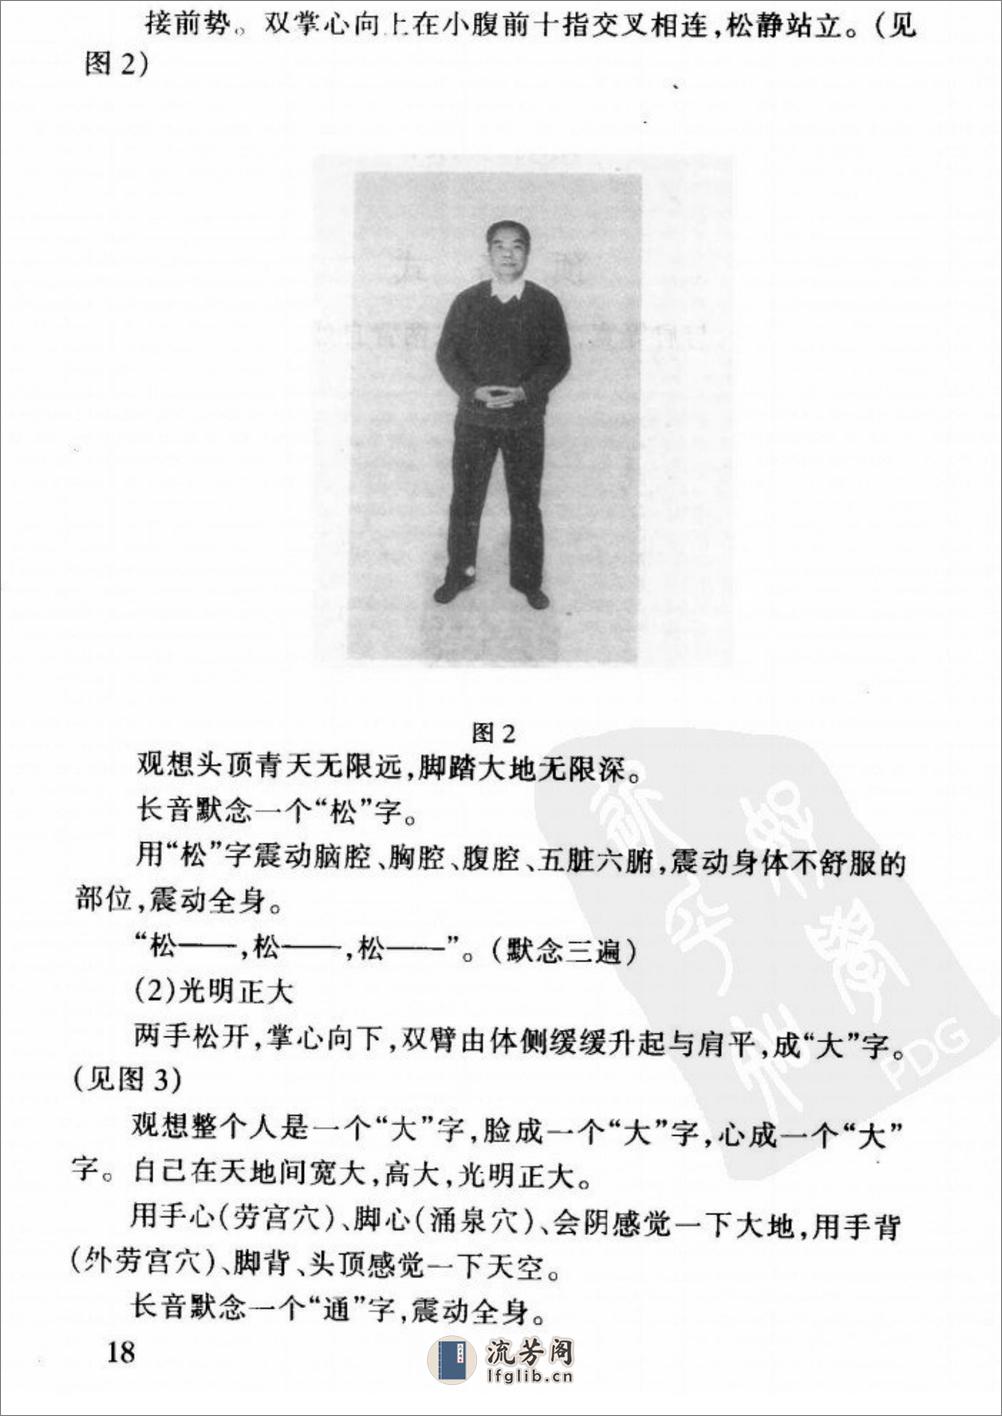 接前势。双掌心向上在小腹前十指交叉相连,松静站立。(见
图2)
图2
观想头顶青天无限远,脚踏大地无限深。
长音默念一个“松”字。
用“松”字震动脑腔、胸腔、腹腔、五脏六腑,震动身体不舒服的
部位,震动全身。
“松——,松——,松——”。(默念三遍)
(2)光明正大
两手松开,掌心向下,双臂由体侧缓缓升起与肩平,成“大”字。
(见图3)
观想整个人是一个“大”字,脸成一个“大”字,心成一个“大”
字。自己在天地间宽大,高大,光明正大。
用手心(劳宫穴)、脚心(涌泉穴)、会阴感觉一下大地,用手背
(外劳宫穴)、脚背、头顶感觉一下天空。
长音默念一个“通”字,震动全身。
18
流芳阁
lfglib.cn
PDG